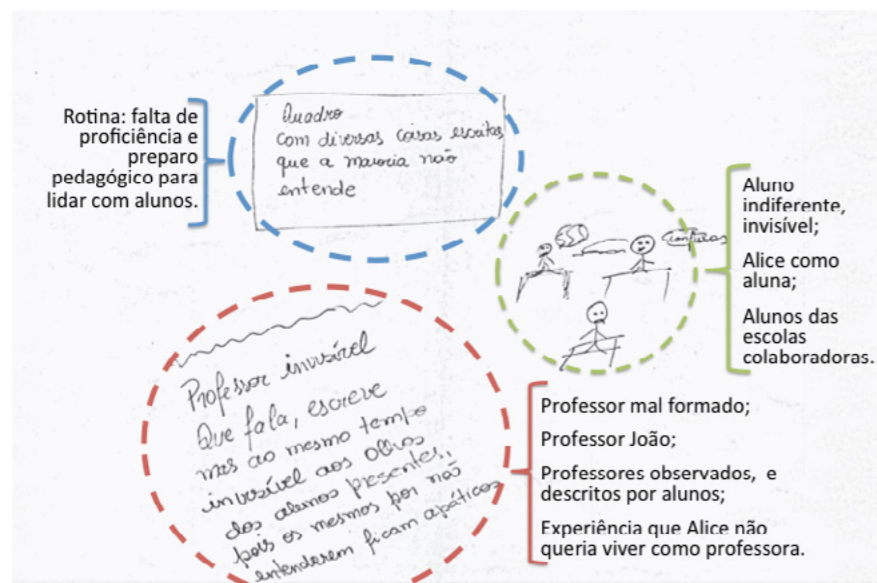 Rotina: falta de
proficiência e
preparo
pedagógico para
lidar com alunos.
Quadro
com diversas coisas escritas
que a maioria não
entende
Aluno
indiferente,
invisível;
Alice como
aluna;
Alunos das
escolas
colaboradoras.
Professor invisível
Que fala, escreve
mas ao mesmo tempo
invisível aos olhos
dos alunos presentes,
pois os mesmos por não
entenderem ficam apáticos
Professor mal formado;
Professor João;
Professores observados, e
descritos por alunos;
Experiência que Alice não
queria viver como professora.